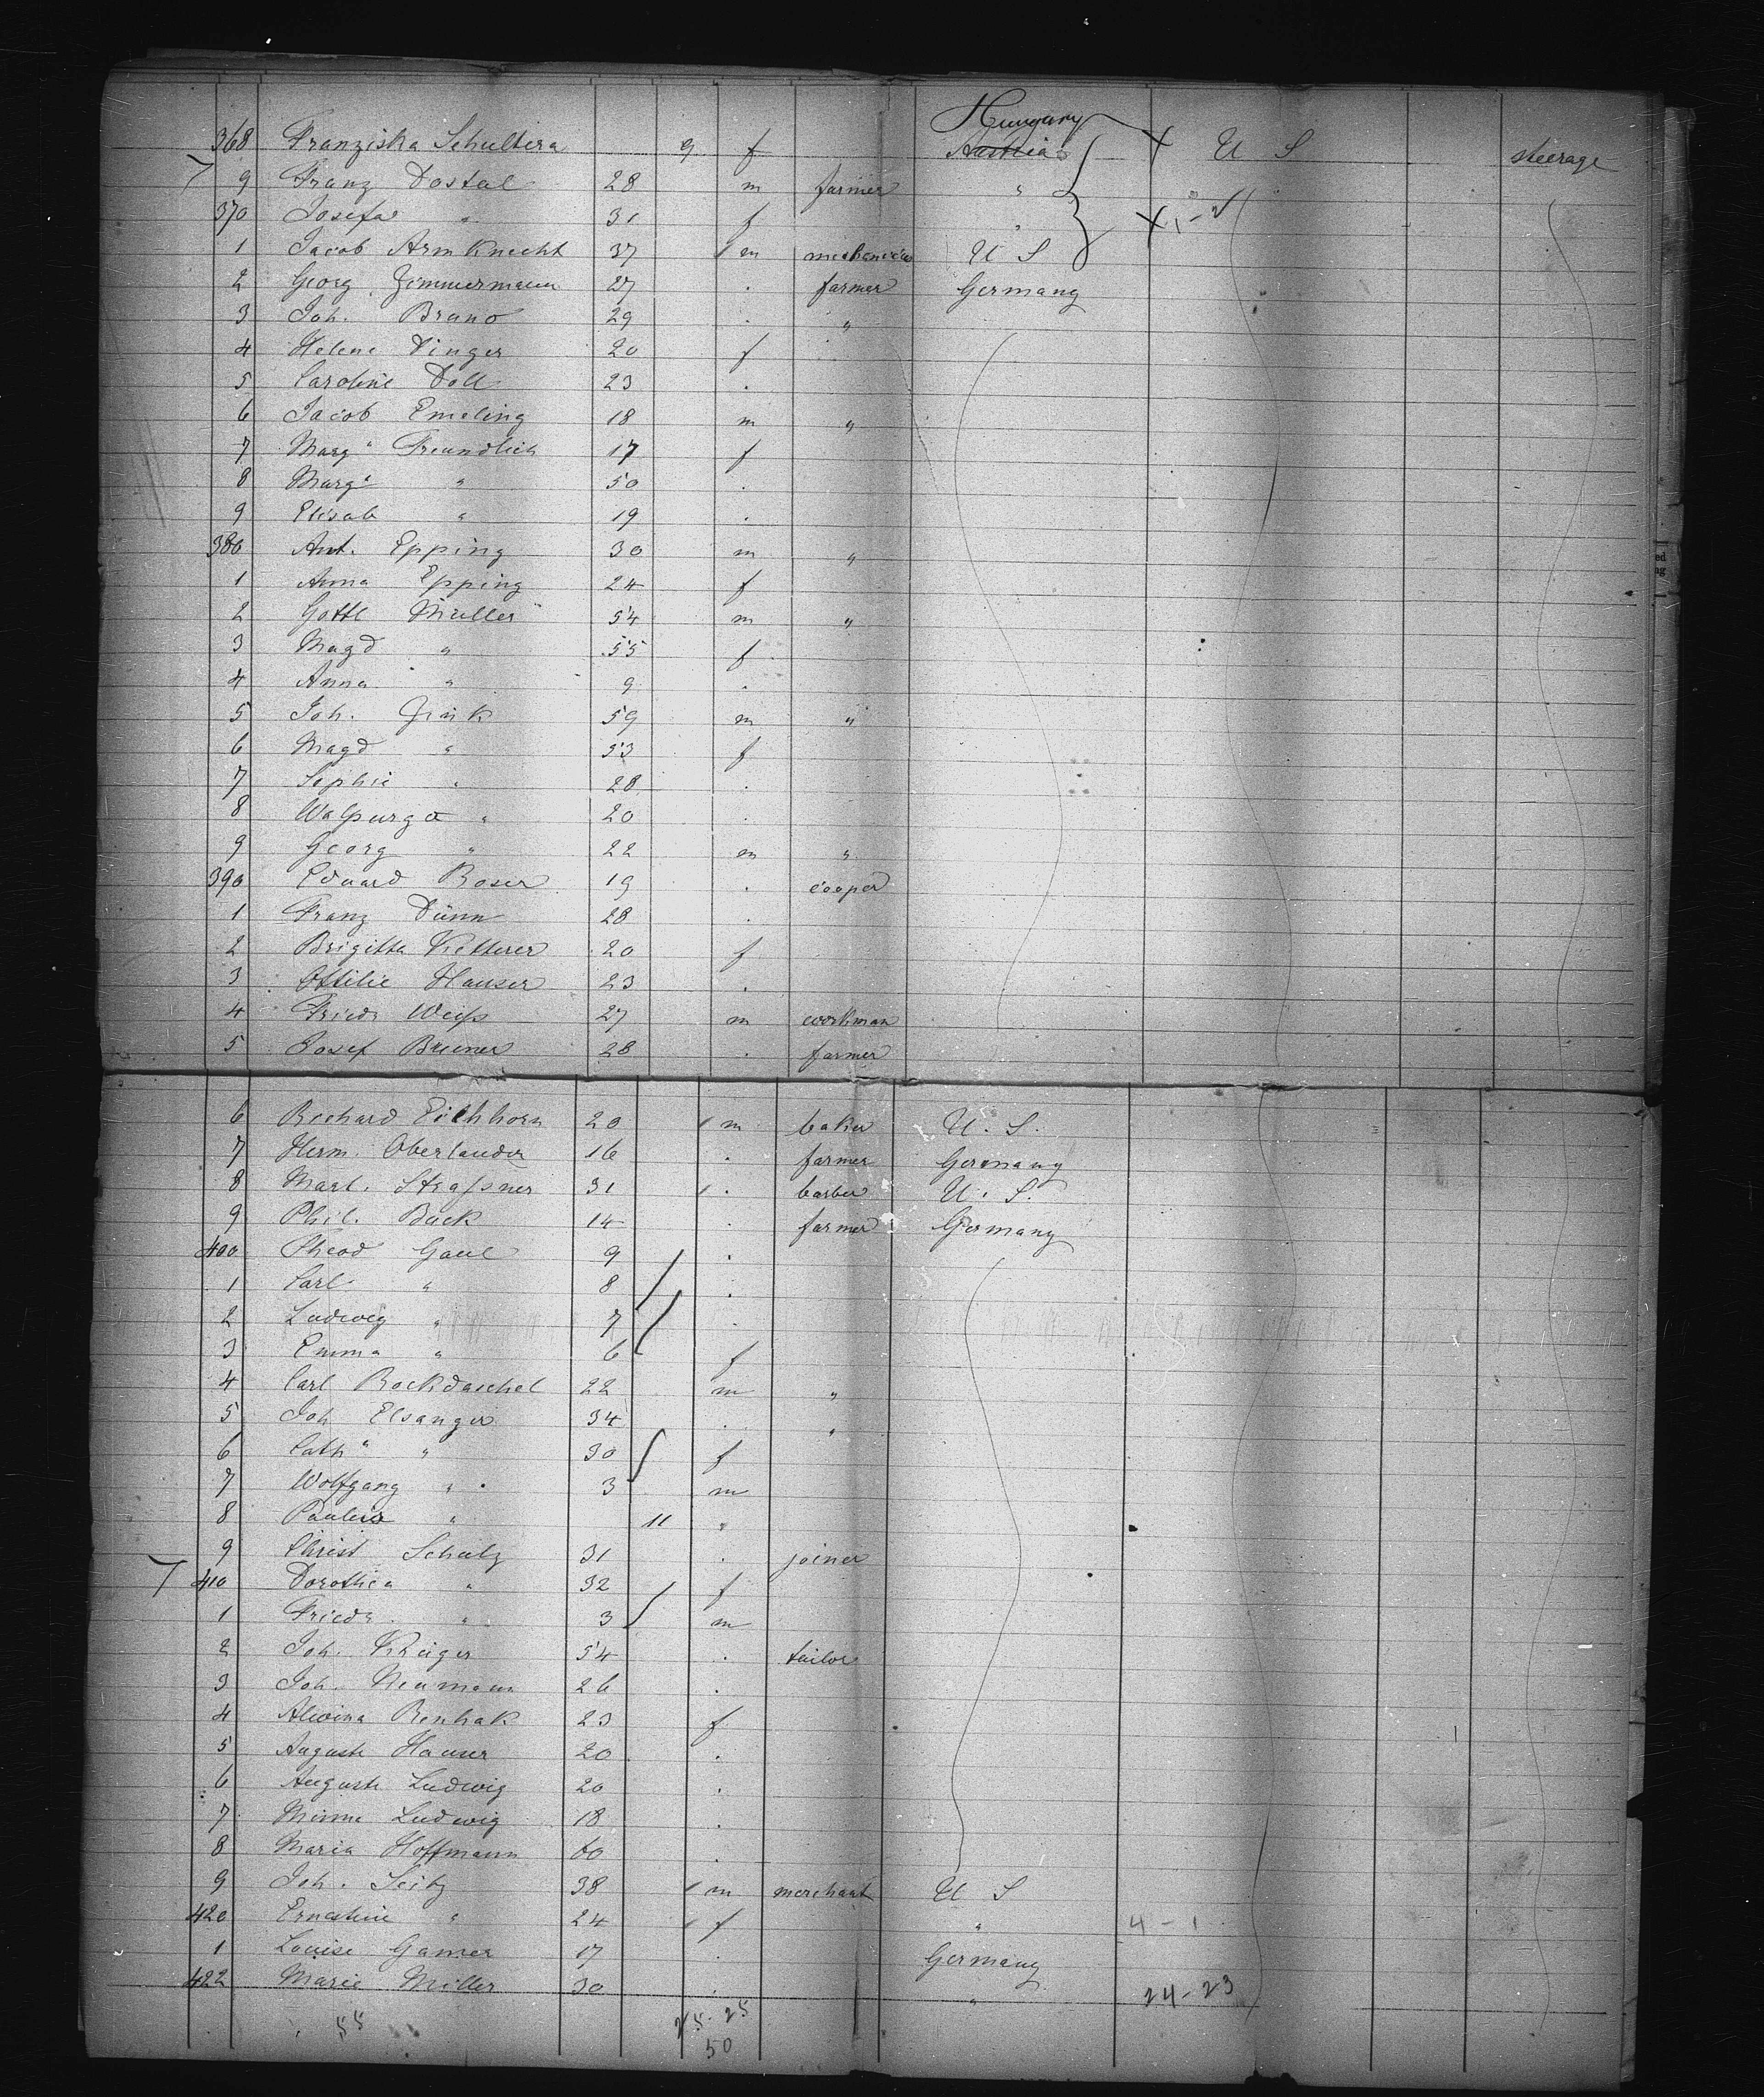 Hungary
368 Franziska Schultera 9 f Austria U S steerage
9 Franz Dostal 28 m farmer "
370 Josefa " 31 f " X 1-2
1 Jacob Armknecht 37 m mechanician U S
2 Georg Zimmermann 27 . farmer Germany
3 Joh. Bruno 29 . "
4 Helene Dinger 20 f
5 Caroline Doll 23 .
6 Jacob Emeling 18 m "
7 Marg. Freundlich 17 f
8 Marg. " 50 .
9 Elisab " 19 .
380 Ant. Epping 30 m "
1 Anna Epping 24 f
2 Gottl Müller 54 m "
3 Magd " 55 f
4 Anna " 9 .
5 Joh. Zink 59 m "
6 Magd " 53 f
7 Sophie " 28 .
8 Walpurga " 20 .
9 Georg " 22 m "
390 Eduard Boser 19 . cooper
1 Franz Dünn 28 .
2 Brigitta Ketterer 20 f
3 Ottilie Hauser 23 .
4 Friedr Weiss 27 m workman
5 Josef Bruner 28 . farmer
6 Richard Eichhorn 20 m baker U. S.
7 Herm. Oberlander 16 . farmer Germany
8 Mart. Strassner 31 . barber U. S.
9 Phil. Buck 14 . farmer Germany
400 Theod Gaul 9 .
1 Carl " 8 .
2 Ludwig " 7 .
3 Emma " 6 f
4 Carl Bockdaschel 22 m "
5 Joh Elsanger 34 . "
6 Cath " " 30 f
7 Wolfgang " 3 m
8 " 11 "
9 Christ Schulz 31 . joiner
410 Dorothea " 32 f
1 Friedr. " 3 m
2 Joh. Krüger 54 . tailor
3 Joh. Neumann 26 .
4 Alwina Renhak 23 f
5 Auguste Hauser 20 .
6 Auguste Ludwig 20 .
7 Minna Ludwig 18 .
8 Maria Hoffmann 60 .
9 Joh. Seitz 38 m merchant U S
420 Ernestine " 24 f " 4-1
1 Louise Gamer 17 . Germany
422 Marie Miller 30 . " 24-23
55 25-25
50